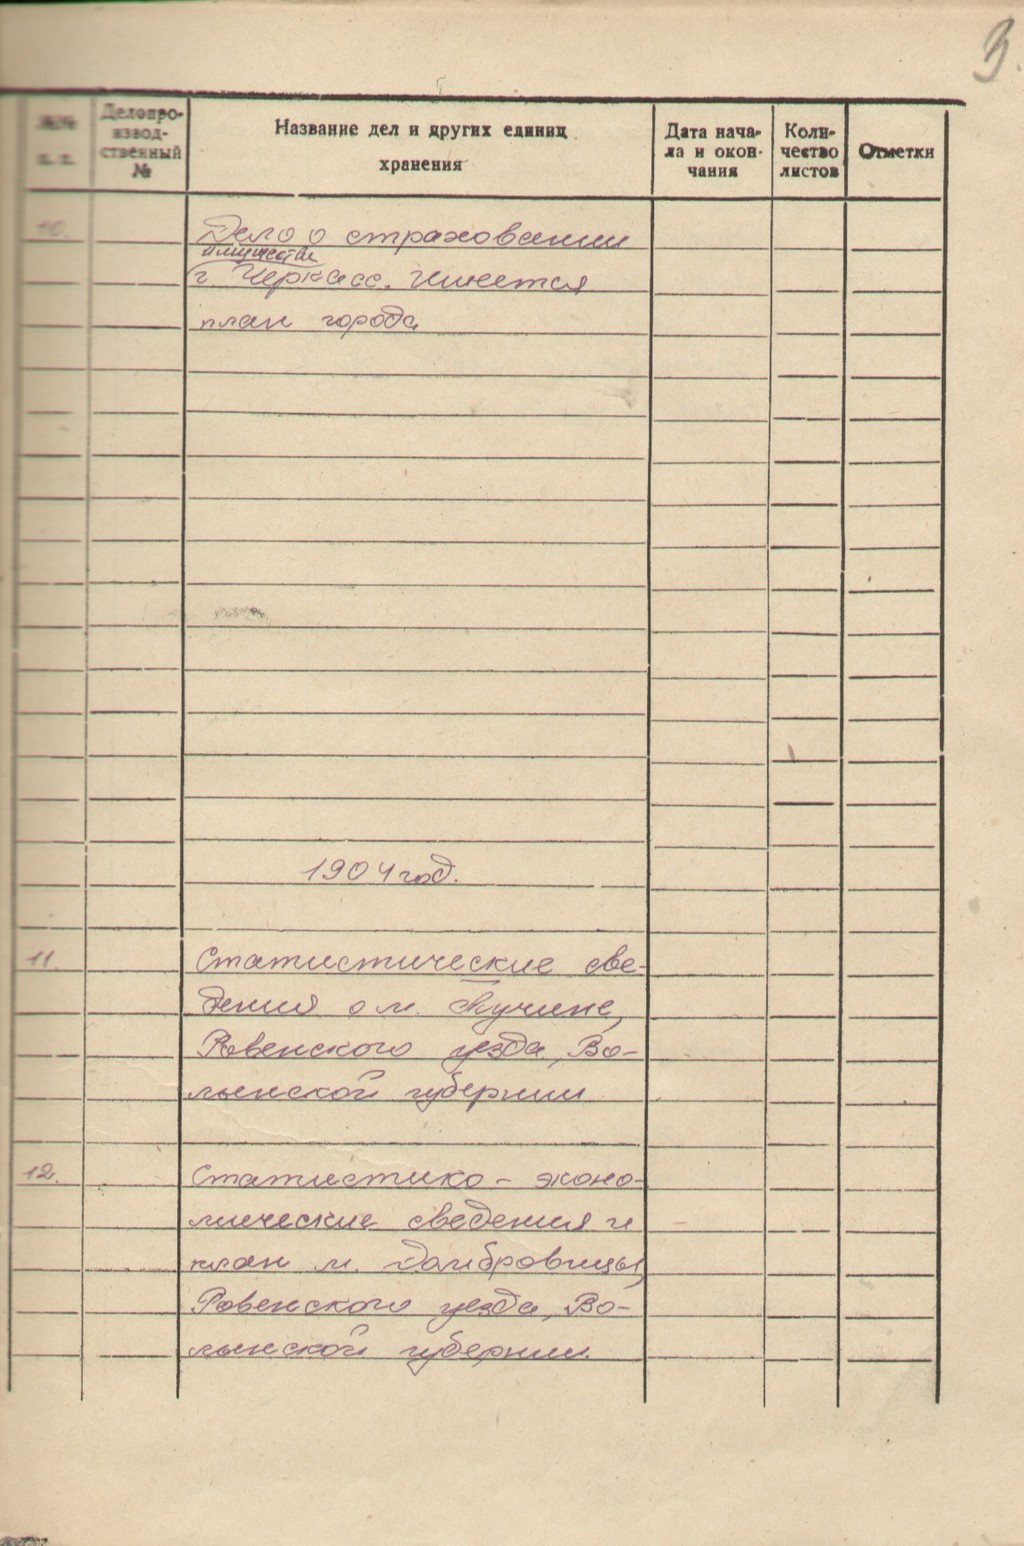 3.
№№ п. п.
Делопро-
извод-
ственный
№
Название дел и других единиц
хранения
Дата нача-
ла и окон-
чания
Коли-
чество
листов
Отметки
10. Дело о страховании
имущества
г. Черкасс. Имеется
план города
1904 год.
11. Статистические све-
дения о м. Тучине,
Ровенского уезда, Во-
лынской губернии
12. Статистико - эконо-
мические сведения и
план м. Домбровицы,
Ровенского уезда, Во-
лынской губернии.